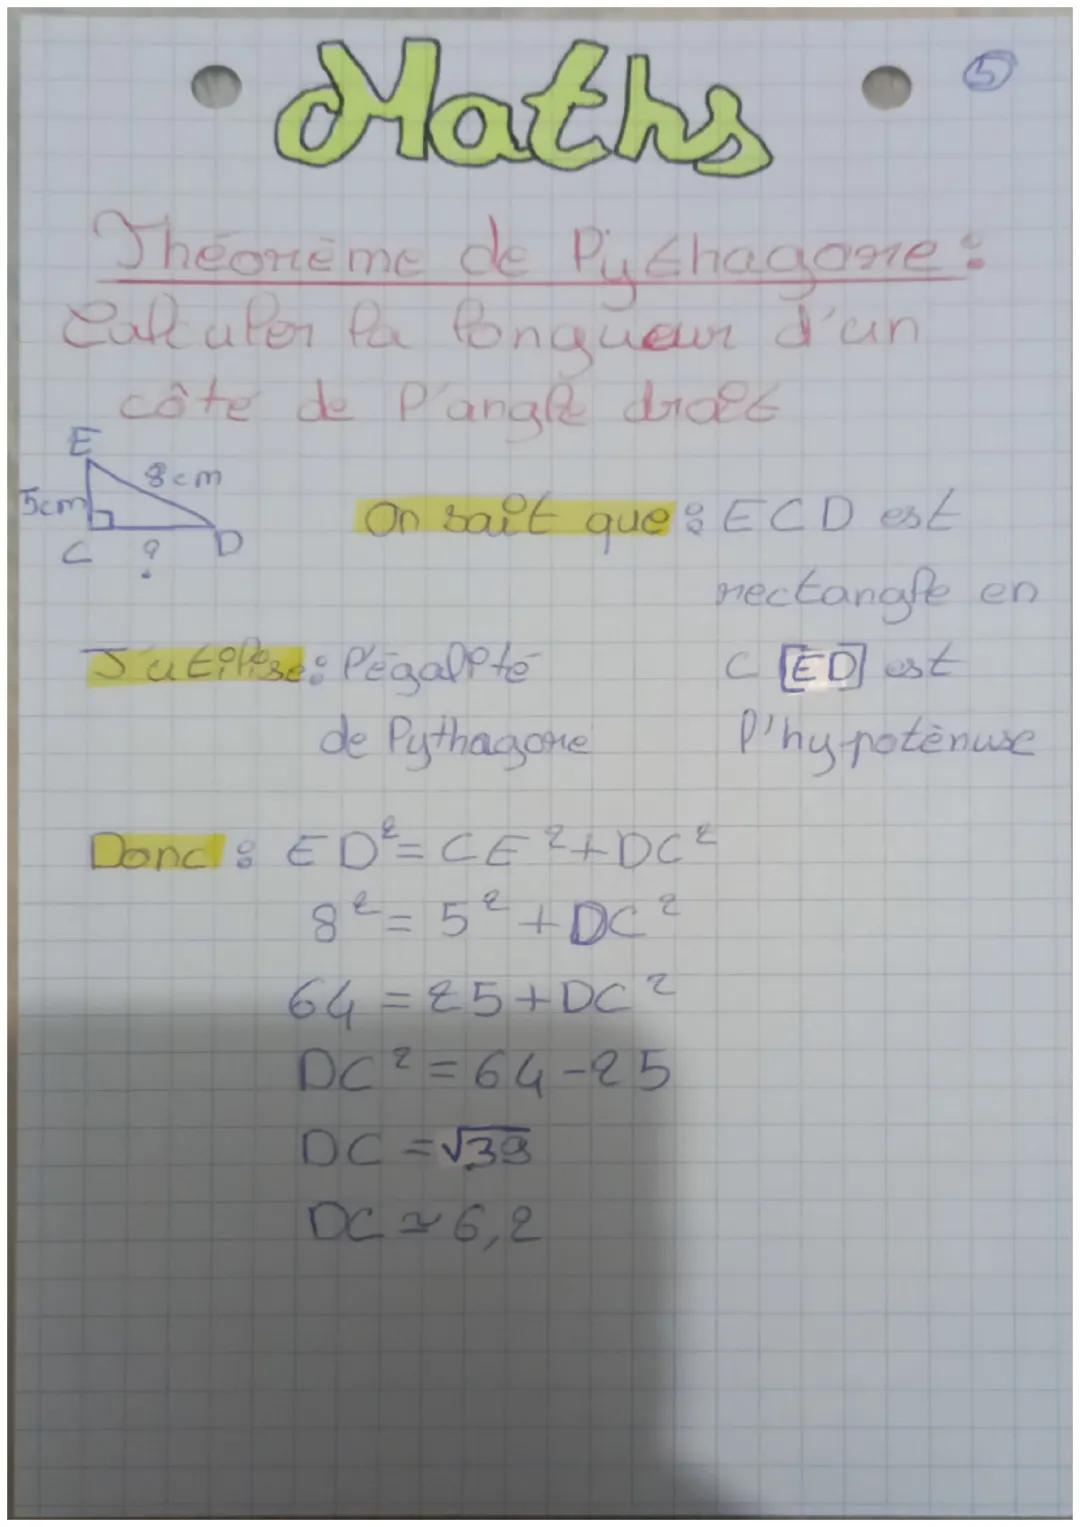 Maths
5
Théorème de Pythagore :
Calculer la longueur d'un
côte de l'angle droit
E
8cm
5cm
C ? D
On sait que : ECD est
rectangle en
C [ED] est
l'hypoténuse
J'utilise : l'égalité
de Pythagore
Donc : ED² = CE² + DC²
8² = 5² + DC²
64 = 25 + DC²
DC² = 64 - 25
DC = √39
DC ≃ 6,2